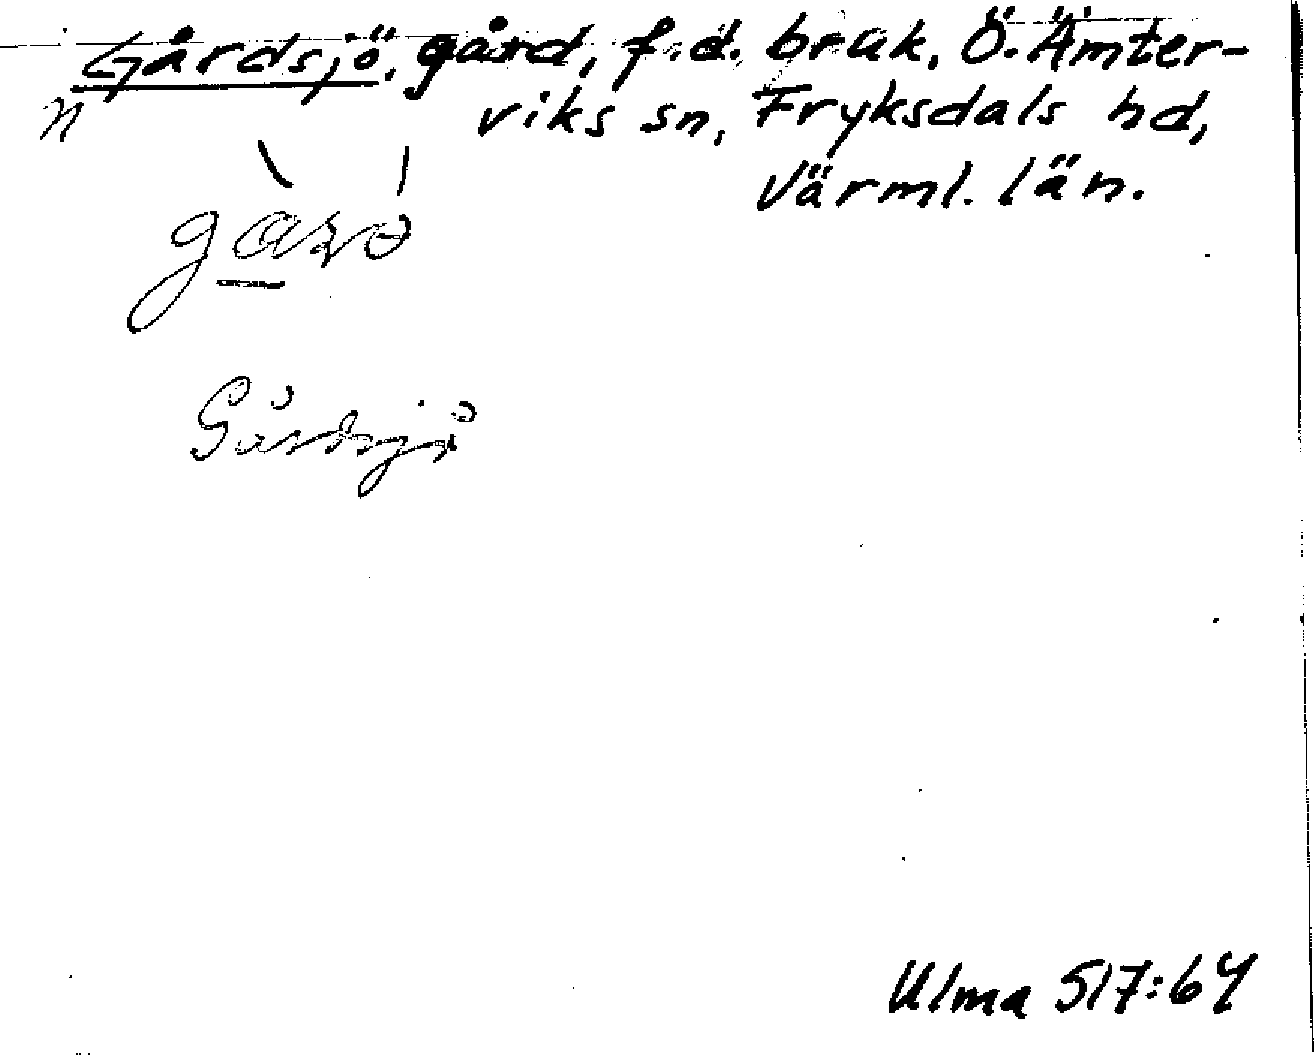 Gårdsjö, gård, f.d. bruk, Ö. Ämter-
n viks sn, Fryksdals hd,
Värml. län.
Gårdsjö
Ulma 517:64